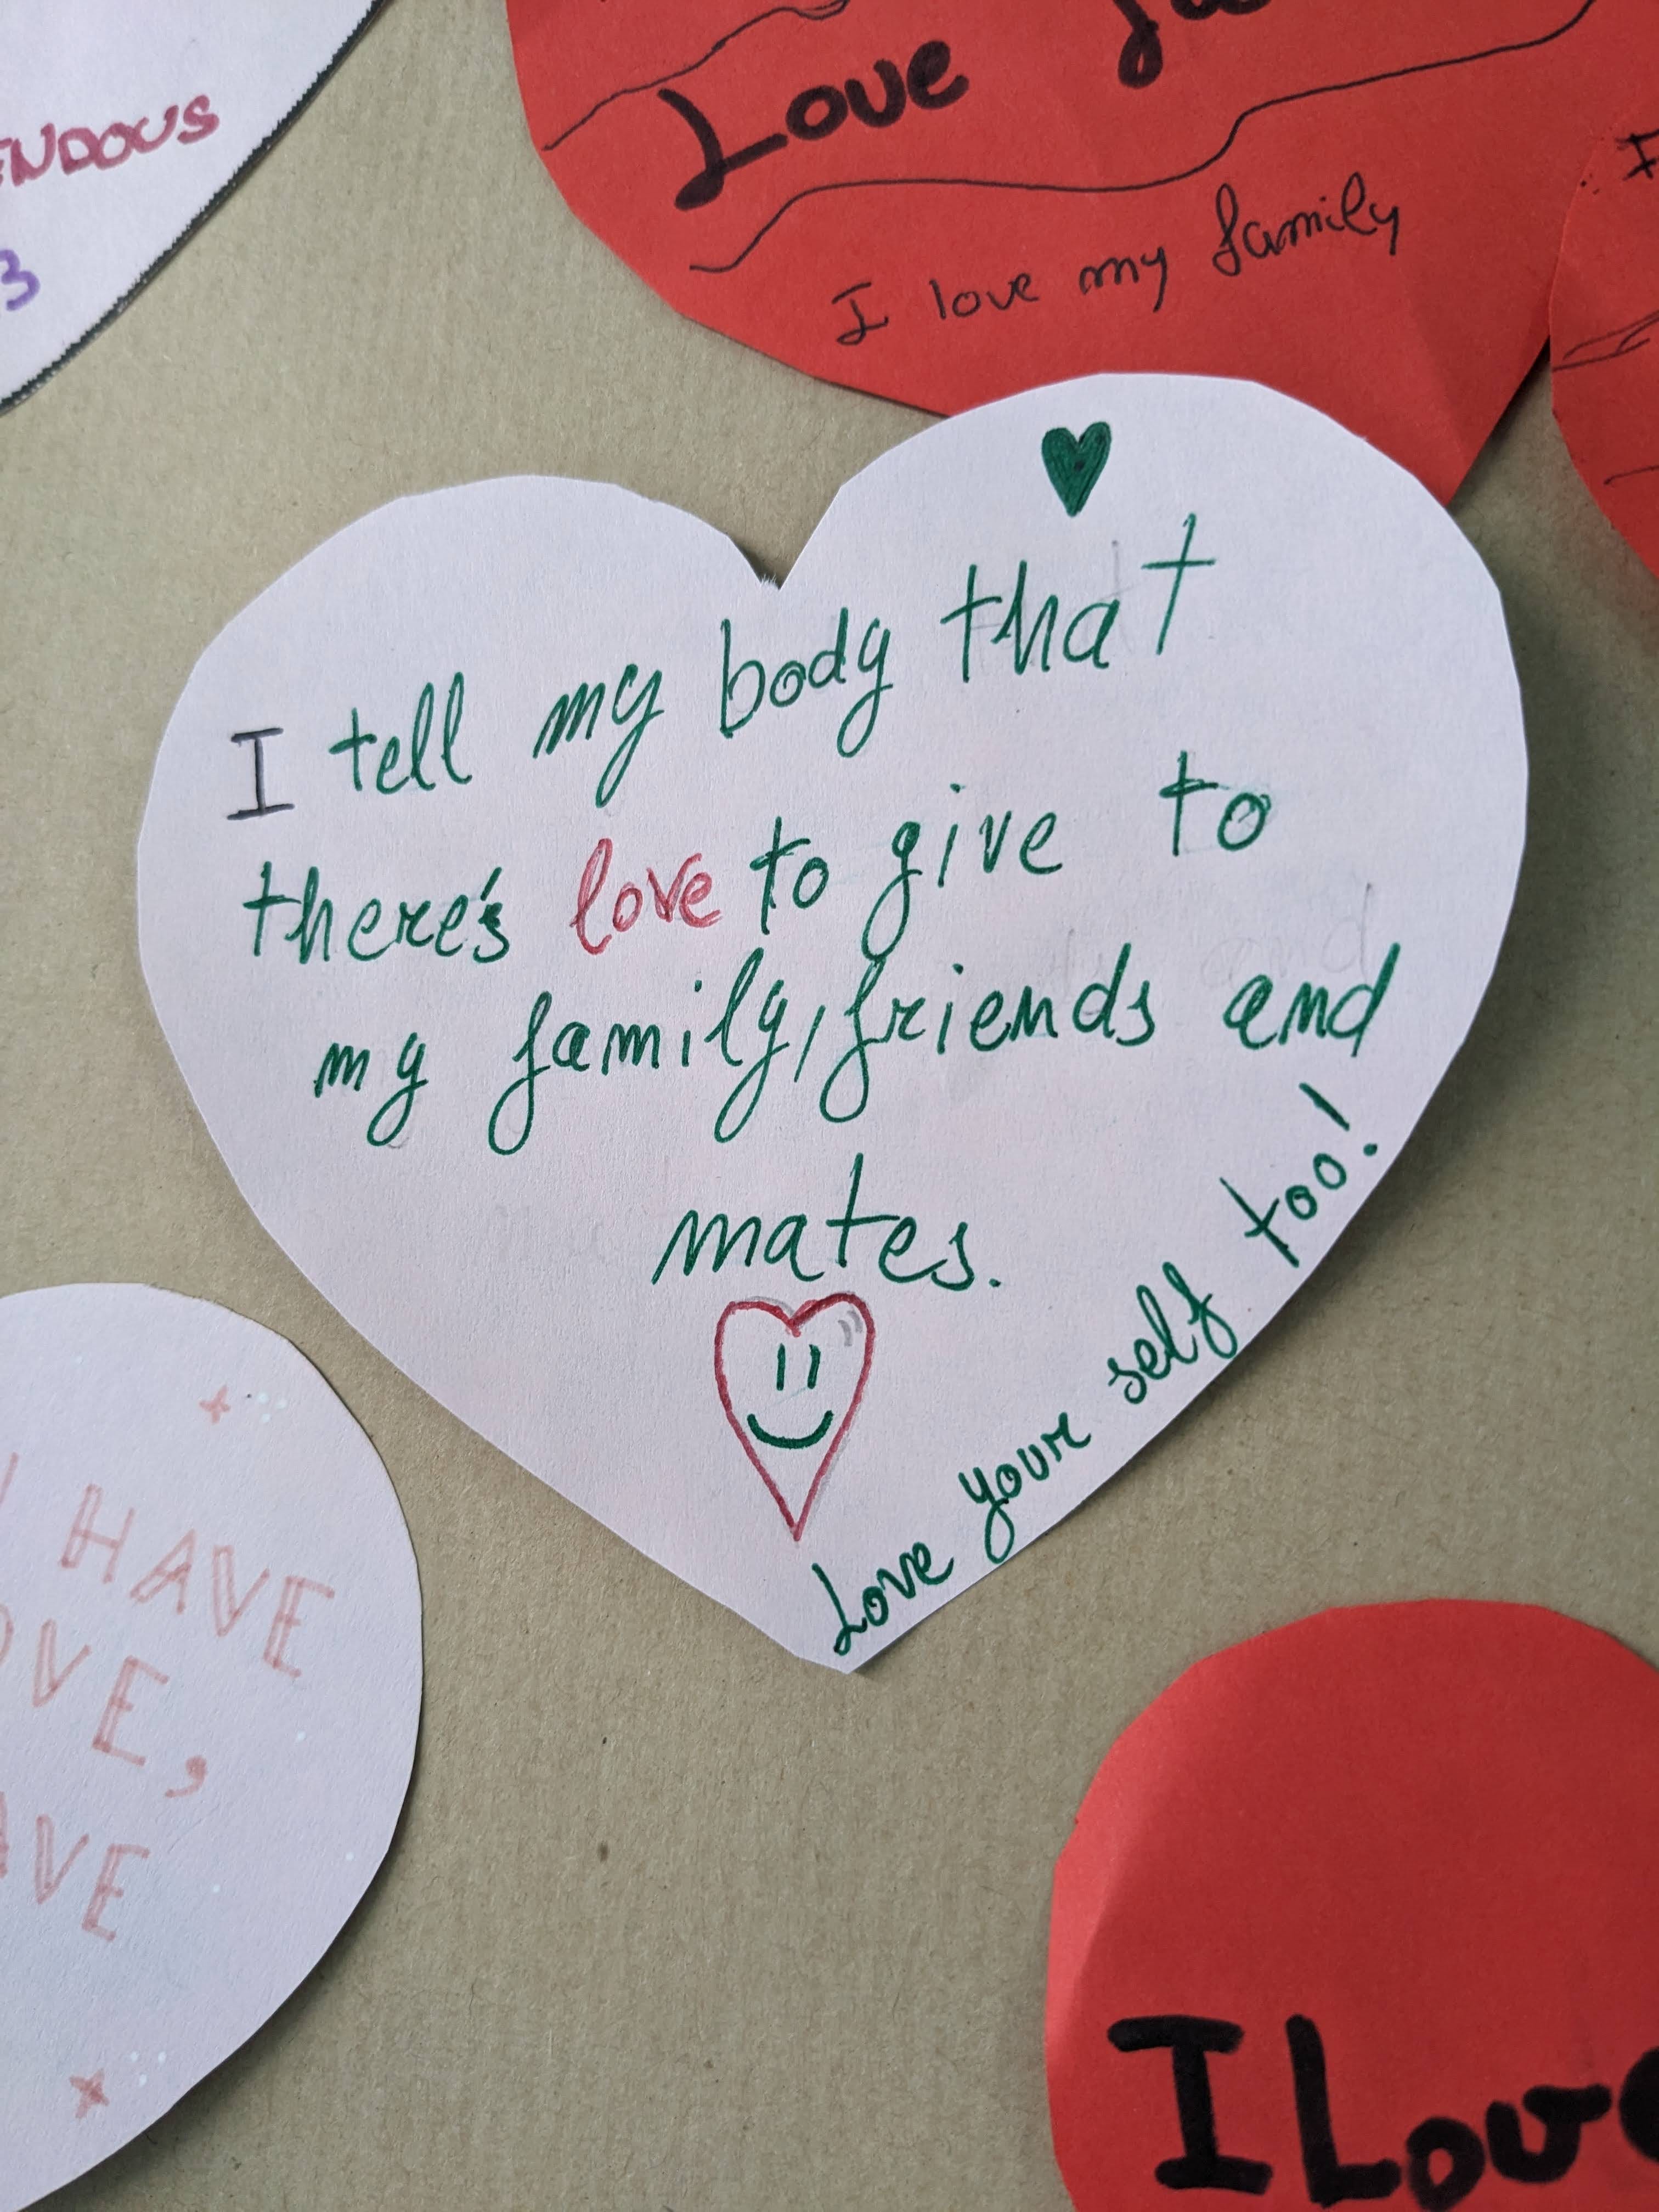 3
Love
I love my family
I tell my body that
there's love to give to
my family, friends and
mates.
Love your self too!
HAVE
I Love